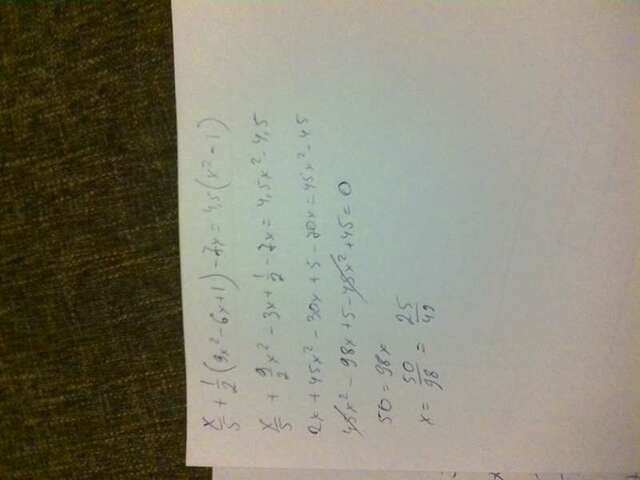 x/5 + 1/2 (9x² - 6x + 1) - 7x = 4,5(x² - 1)
x/5 + 9/2 x² - 3x + 1/2 - 7x = 4,5x² - 4,5
2x + 45x² - 30x + 5 - 70x = 45x² - 45
45x² - 98x + 5 - 45x² + 45 = 0
50 = 98x
x = 50/98 = 25/49